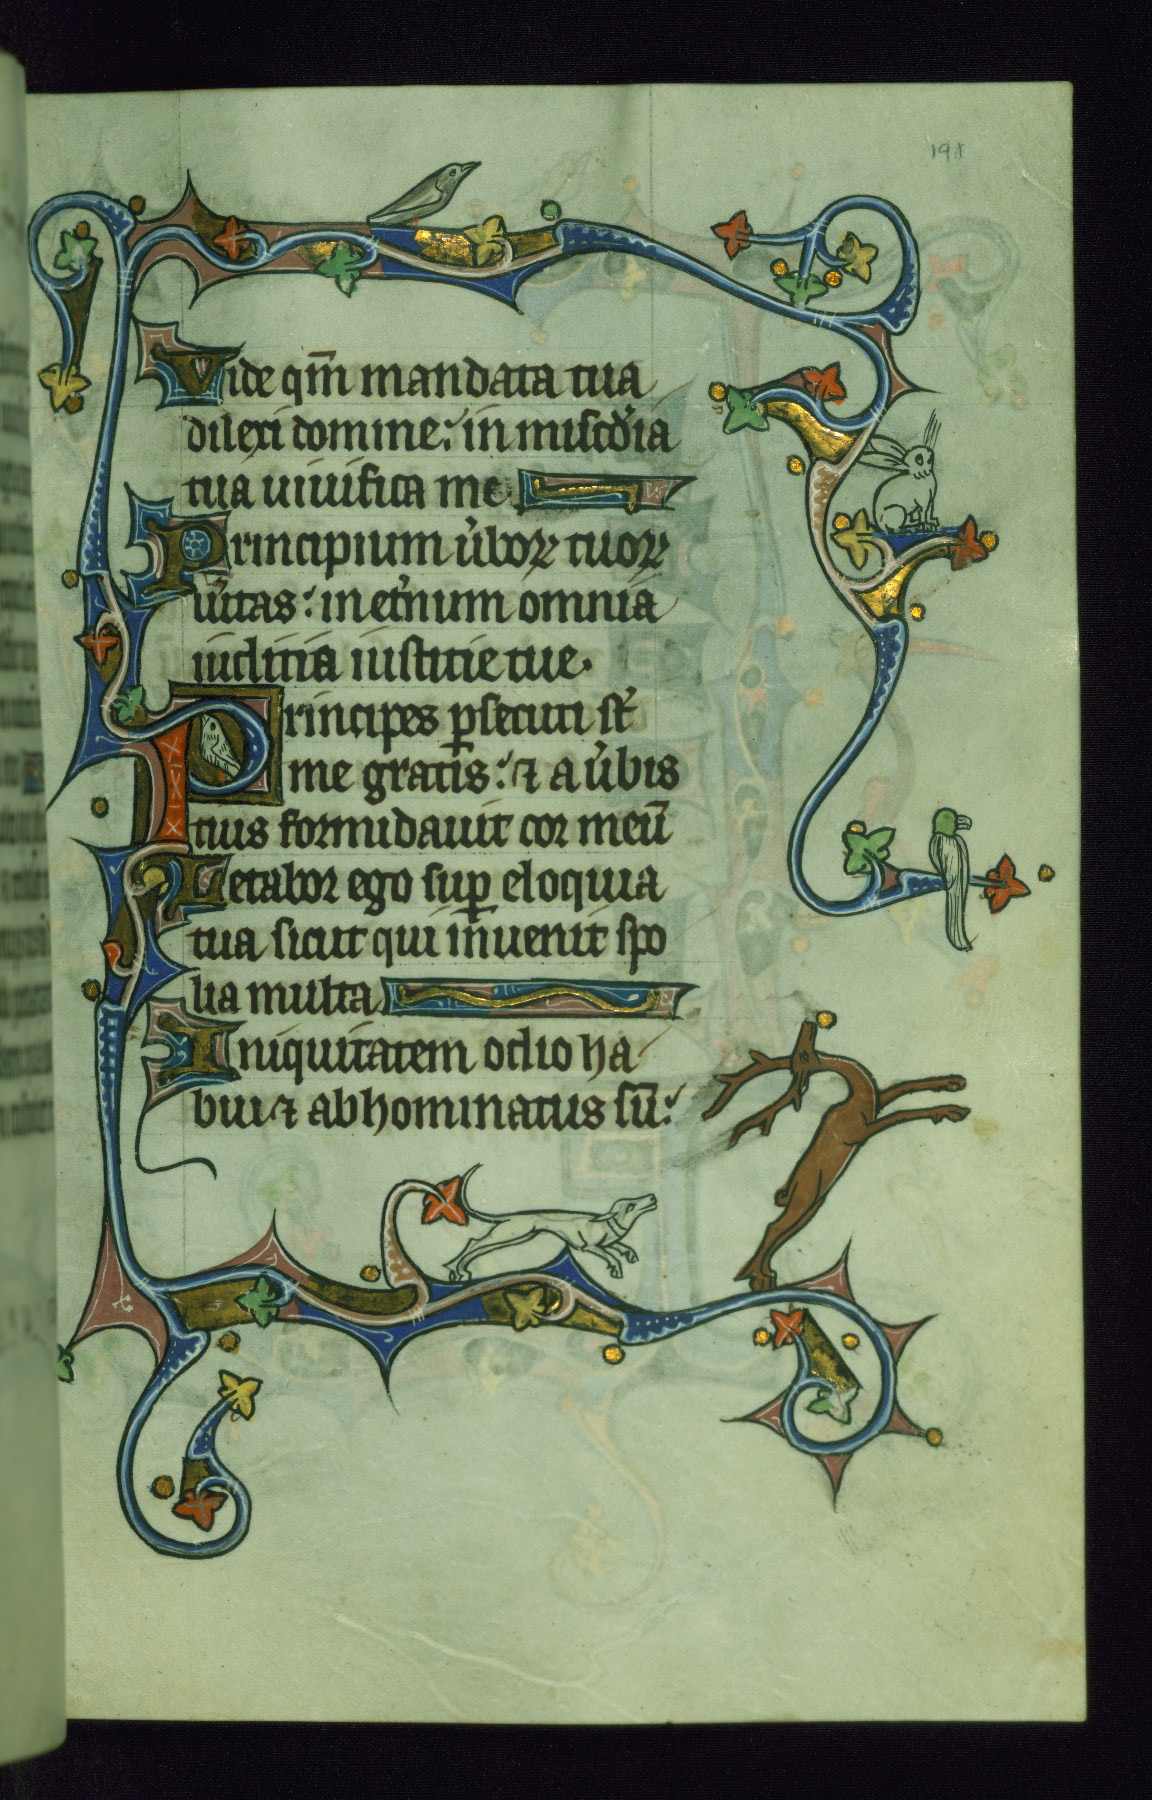 198
Vide qm̄ mandata tua
dilexi domine: in miscd'ia
tua uiuifica me
Principium u'boꝝ tuoꝝ
u'itas: in et'num omnia
iudicia iusticie tue.
Principes ꝑsecuti st̄
me gratis: ⁊ a u'bis
tuis formidauit cor meū
Letabor ego suꝑ eloquia
tua sicut qui inuenit spo
lia multa
Iniquitatem odio ha
bui ⁊ abhominatus sū: